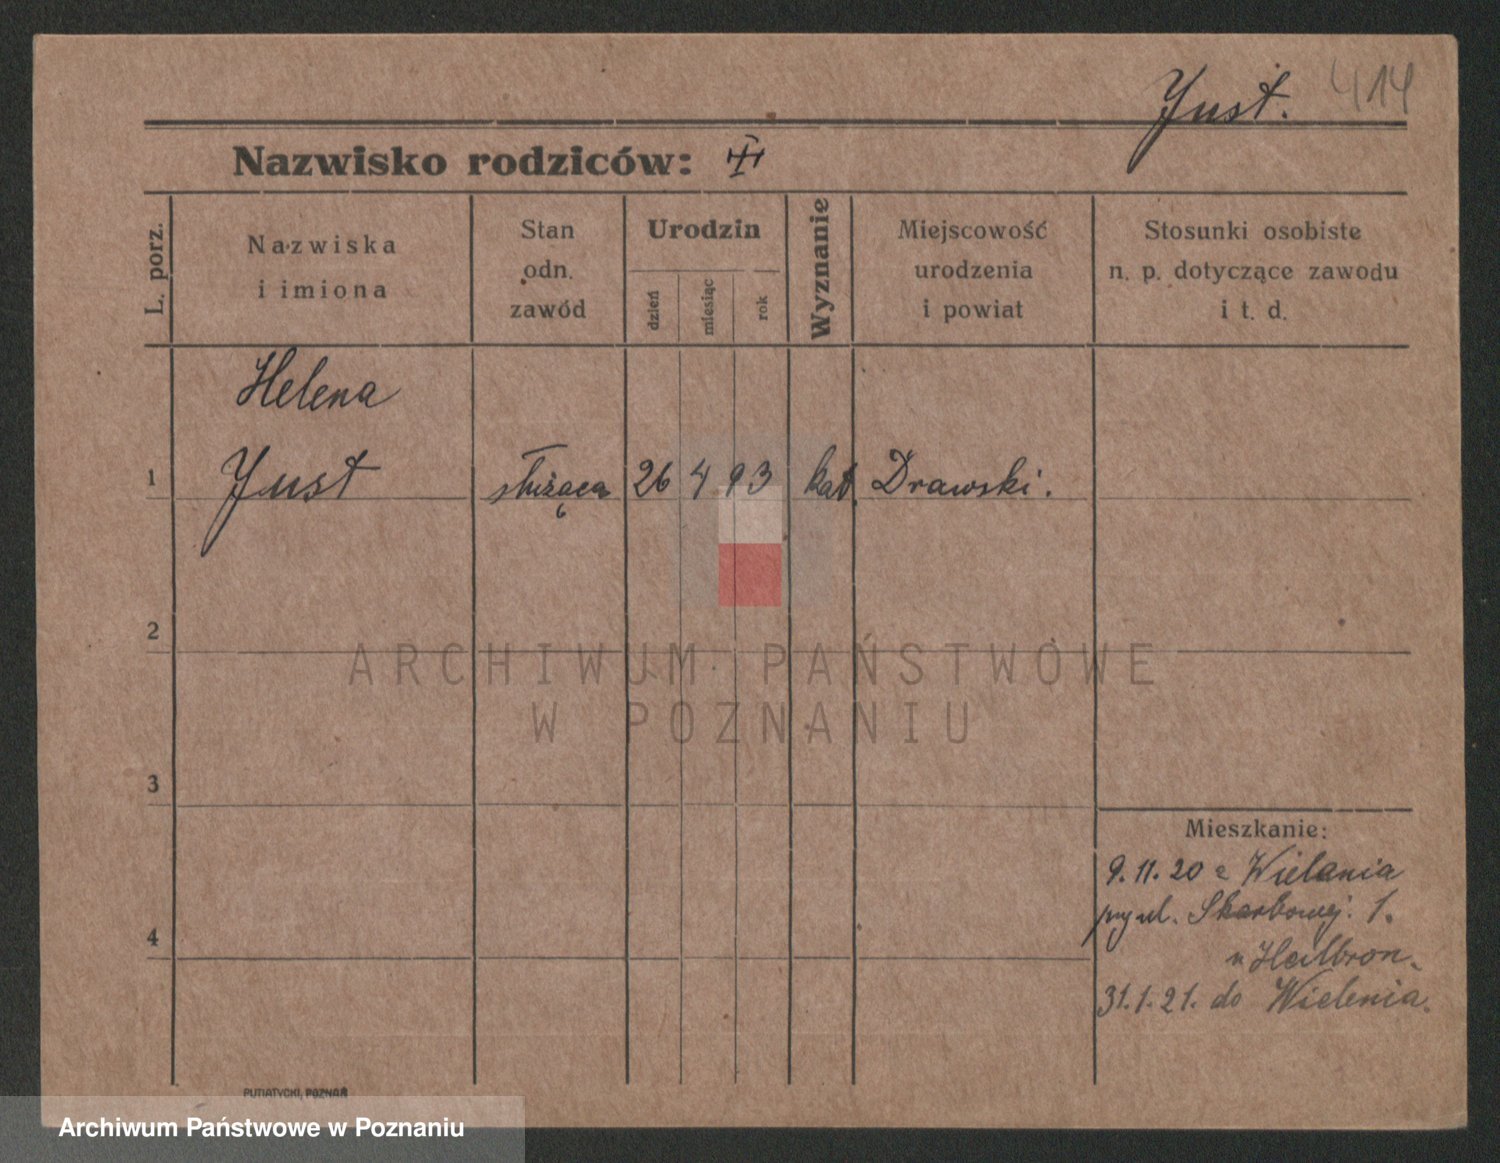 Just. 414
Nazwisko rodziców:
L. porz.
Nazwiska
i imiona
Stan
odn.
zawód
Urodzin
dzień
miesiąc
rok
Wyznanie
Miejscowość
urodzenia
i powiat
Stosunki osobiste
n. p. dotyczące zawodu
i t. d.
Helena
1 Just służąca 26 4 93 kat. Drawski.
2
ARCHIWUM PAŃSTWOWE
W POZNANIU
3
Mieszkanie:
9.11.20 z Wielania
przy ul. Skarbowej. 1.
4
u Heilbron.
31.1.21. do Wielenia.
PUTIATYCKI, POZNAŃ
Archiwum Państwowe w Poznaniu